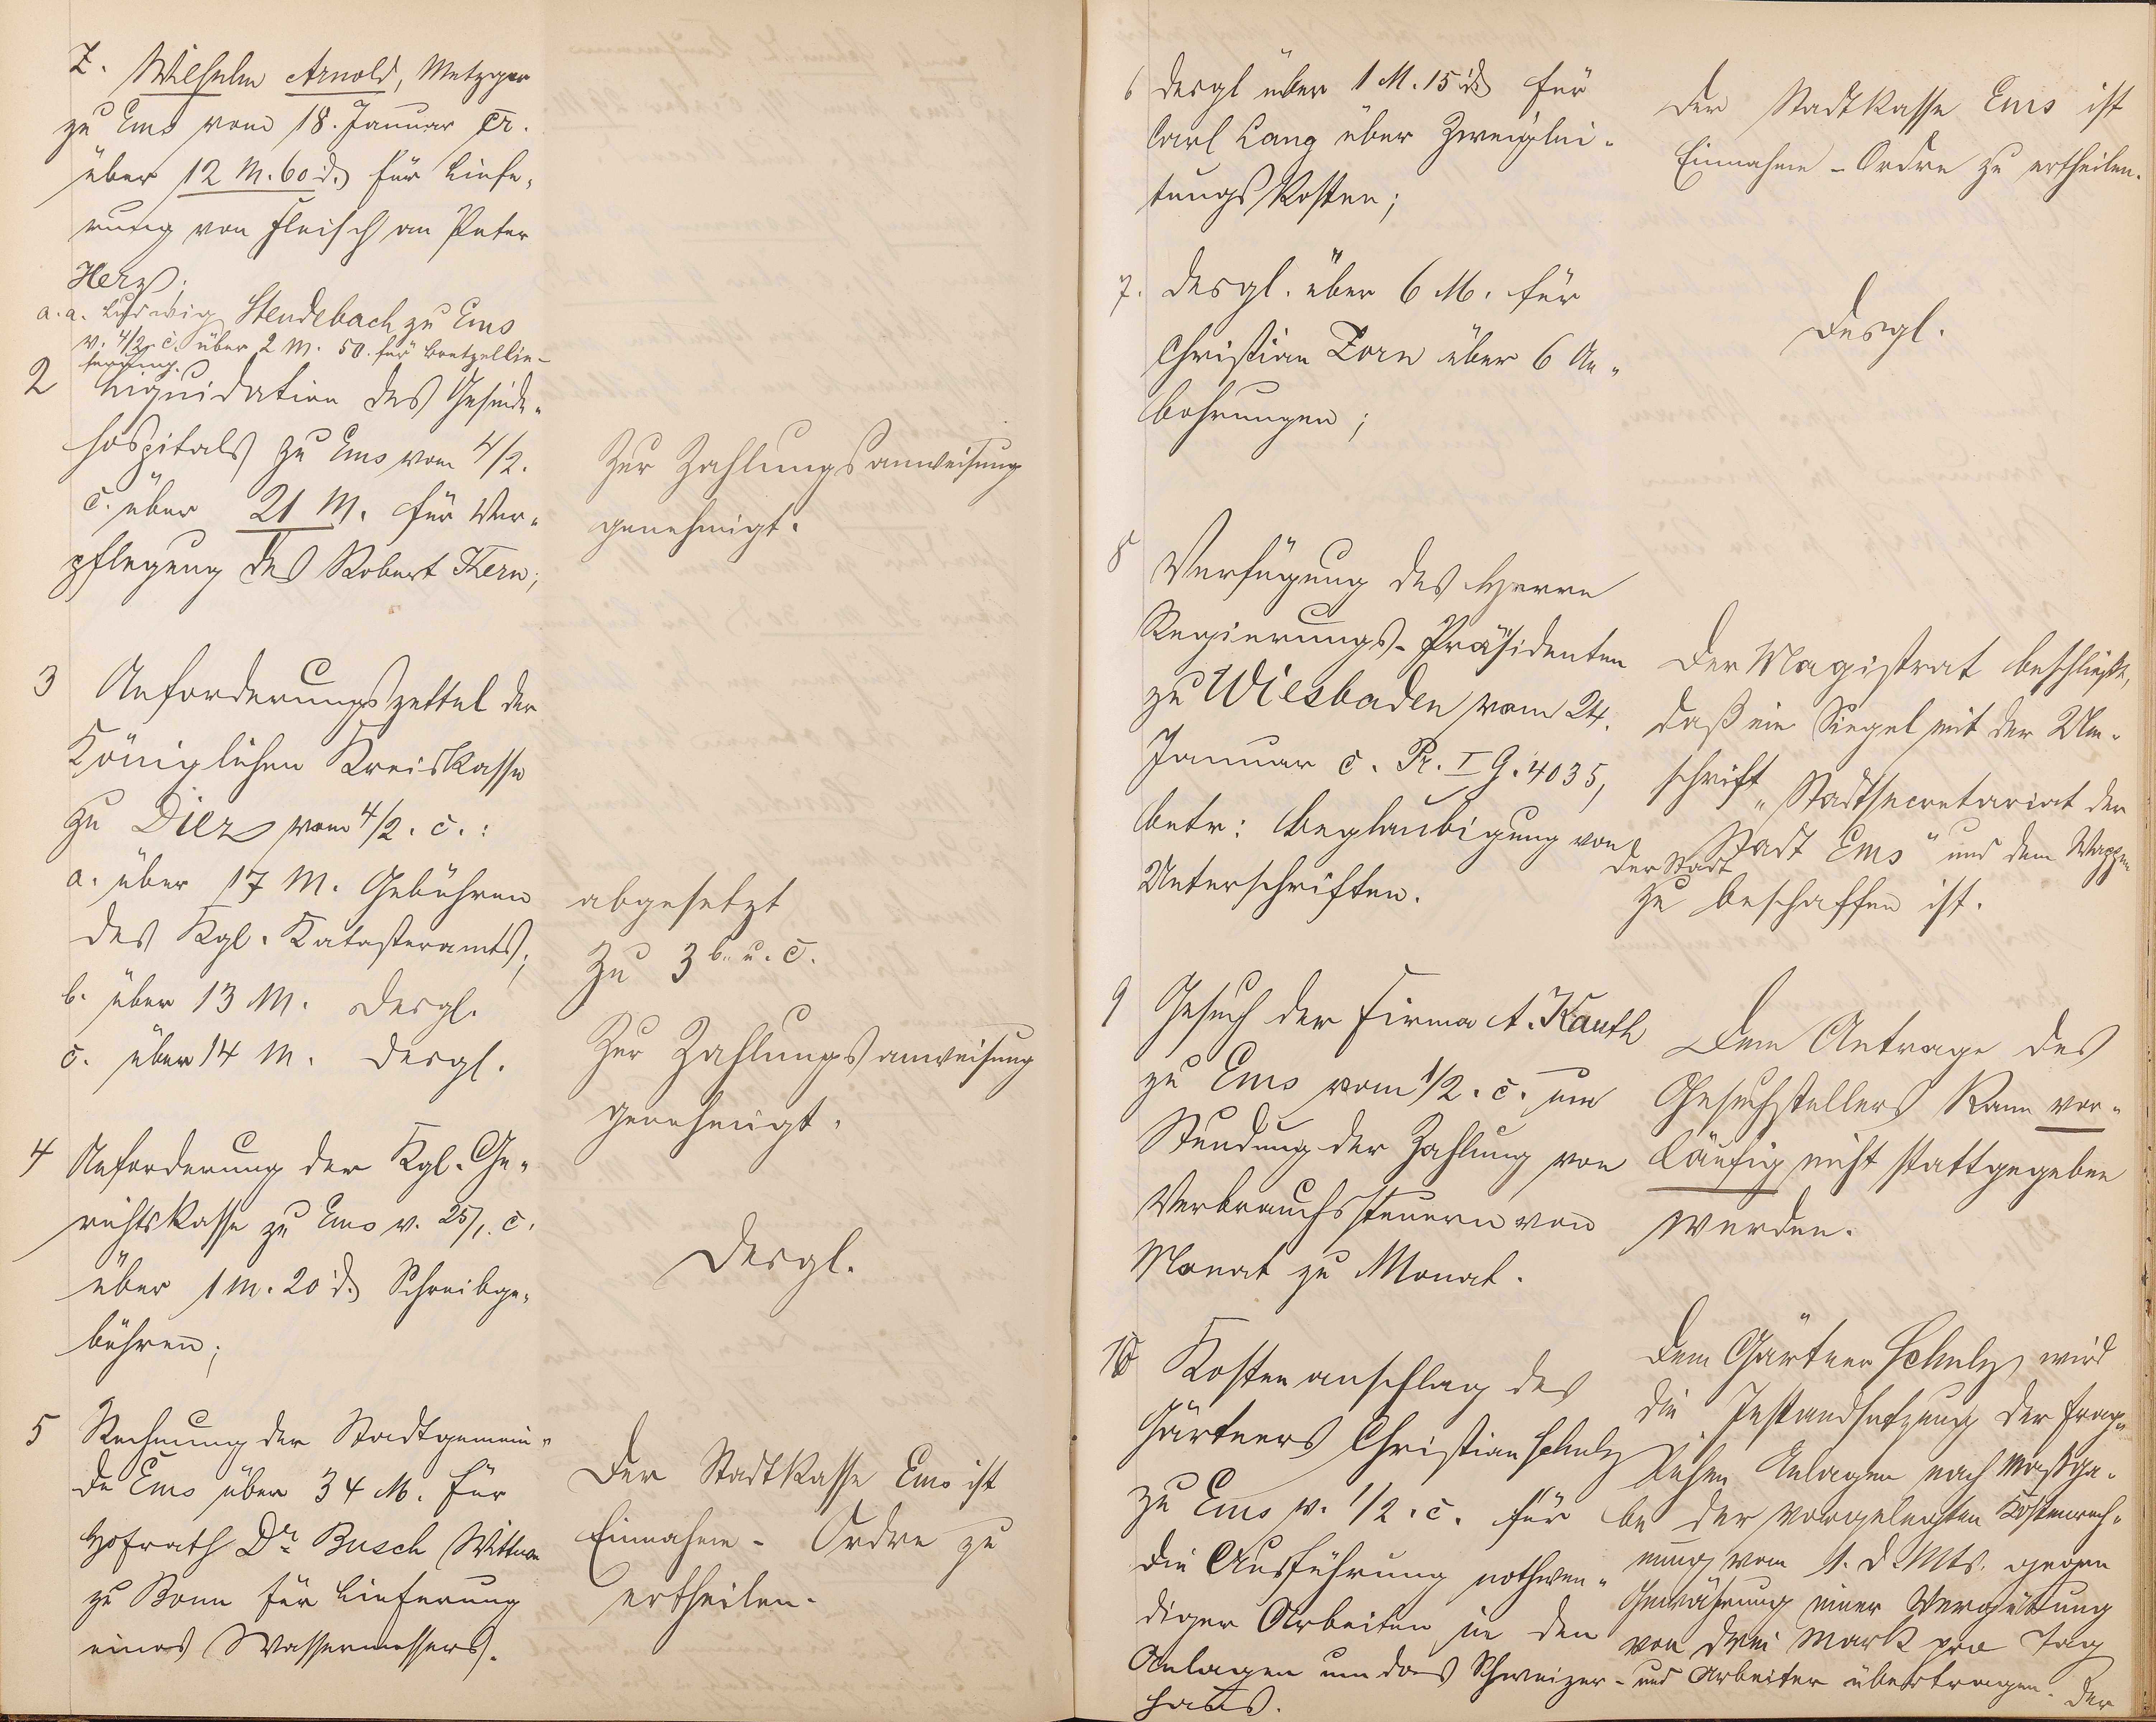 Z. Wilhelm Arnold, Metzger
zu Ems vom 18. Januar cr.
über 12 M. 60 d. für Liefe-
rung von Fleisch an Peter
Herz;
a.a. Ludwig Stendebach zu Ems
v. 4/2 c. über 2 M. 50. für Bretzellie-
ferung.
2 Liquidation des Gesinde-
hospitals zu Ems vom 4/2.
c. über 21 M. für Ver-
pflegung des Robert Kern;
Zur Zahlungsanweisung
genehmigt.
3 Anforderungszettel der
Königlichen Kreiskasse
zu Diez vom 4/2. c.:
a. über 17 M. Gebühren
des Kgl. Katasteramts;
b. über 13 M. desgl.
c. über 14 M. desgl.
abgesetzt
Zu 3 b. u. c.
Zur Zahlungsanweisung
genehmigt.
4 Anforderung der Kgl. Ge-
richtskasse zu Ems v. 25/1. c.
über 1 M. 20 d. Schreibge-
bühren;
Desgl.
5 Rechnung der Stadtgemein-
de Ems über 34 M. für
Hofrath Dr. Busch Wittwe
zu Bonn für Lieferung
eines Wassermessers.
Der Stadtkasse Ems ist
Einnahme- Ordre zu
ertheilen.
6 desgl über 1 M. 15 d für
Carl Lang über Zweiglei-
tungskosten;
Der Stadtkasse Ems ist
Einnahme-Ordre zu ertheilen.
7. desgl. über 6 M. für
Christian Zorn über 6 An-
bohrungen;
Desgl.
8 Verfügung des Herrn
Regierungs-Präsidenten
zu Wiesbaden vom 24.
Januar c. Pr. I G. 4035,
betr: Beglaubigung von
Unterschriften.
Der Magistrat beschließt,
daß ein Siegel mit der Um-
schrift „Stadtsecretariat der
Stadt Ems" und dem Wappen
der Stadt
zu beschaffen ist.
9 Gesuch der Firma A. Kauth
zu Ems vom 1/2. c. um
Stundung der Zahlung von
Verbrauchssteuern von
Monat zu Monat.
Dem Antrage des
Gesuchstellers kann vor-
läufig nicht stattgegeben
werden.
10 Kostenanschlag des
Gärtners Christian Schulz
zu Ems v. 1/2. c. für
die Ausführung nothwen-
diger Arbeiten in den
Anlagen um das Schweizer-
haus.
Dem Gärtner Schulz wird
die Instandsetzung der frag-
lichen Anlagen nach Maßga-
be der vorgelegten Kostenrech-
nung vom 1. d. Mts. gegen
Gewährung einer Vergütung
von drei Mark pro Tag
und Arbeiter übertragen. Der